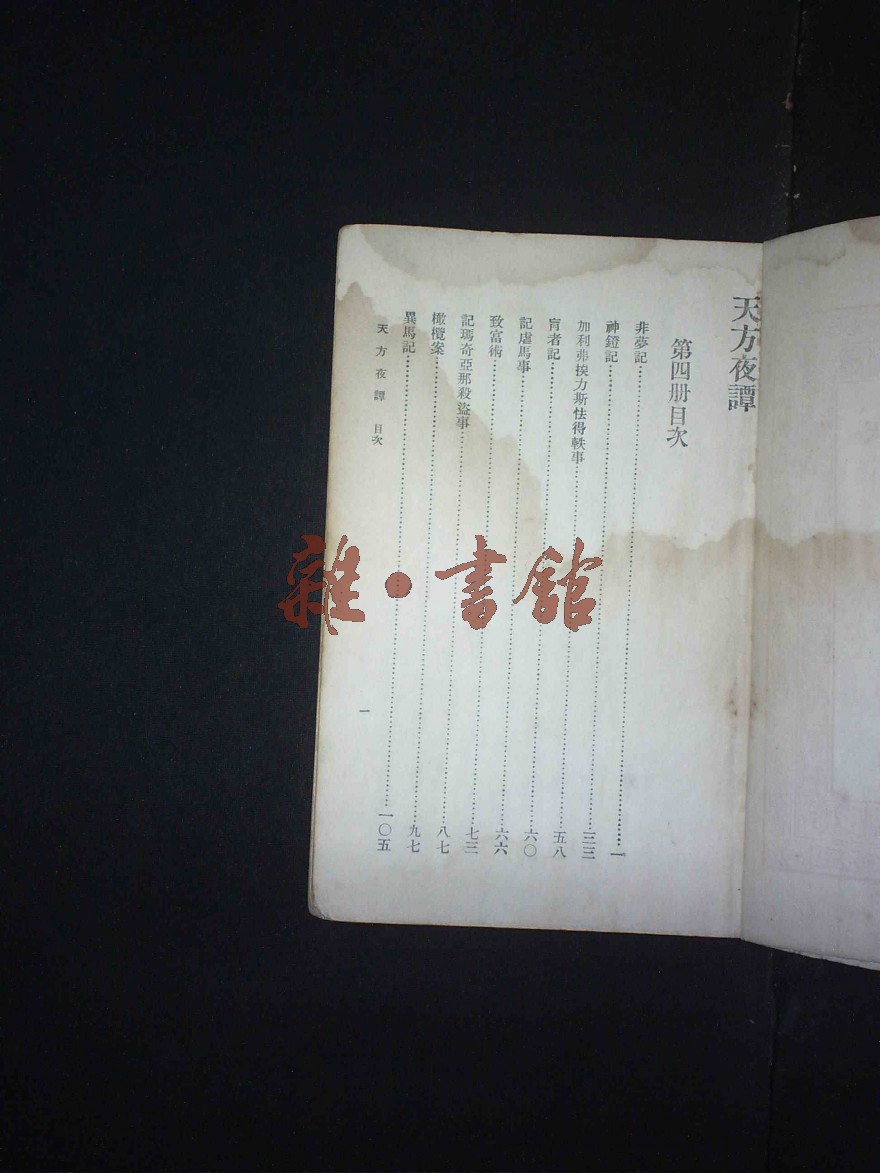 天方夜譚
第四册目次
非夢記……一
神鐙記……三三
加利弗挨力斯怯得軼事……五八
盲者記……六〇
記虐馬事……六六
致富術……七三
記瑪奇亞那殺盜事……八七
橄欖案……九七
異馬記……一〇五
天方夜譚 目次
一
雜•書館